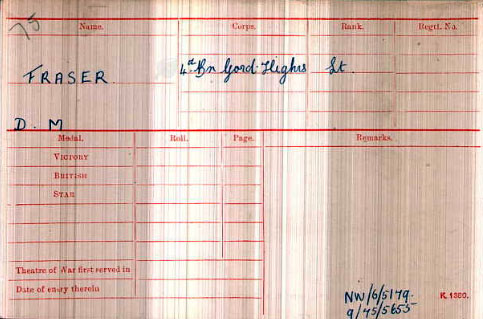 75
Name. Corps. Rank. Regtl. No.
FRASER 4th Bn Gord. Highrs Lt.
D. M
Medal. Roll. Page. Remarks.
VICTORY
BRITISH
STAR
Theatre of War first served in
Date of entry therein
NW/6/5179 K 1380.
9/75/5655